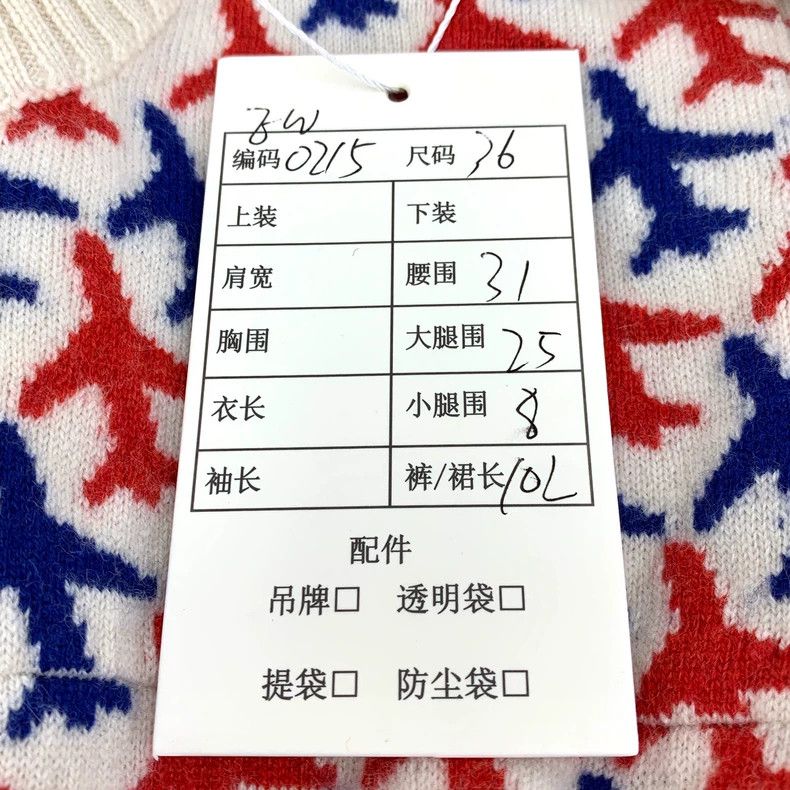 编码 0215 尺码 36
上装 下装
肩宽 腰围 31
胸围 大腿围 25
衣长 小腿围 8
袖长 裤/裙长 102
配件
吊牌□ 透明袋□
提袋□ 防尘袋□